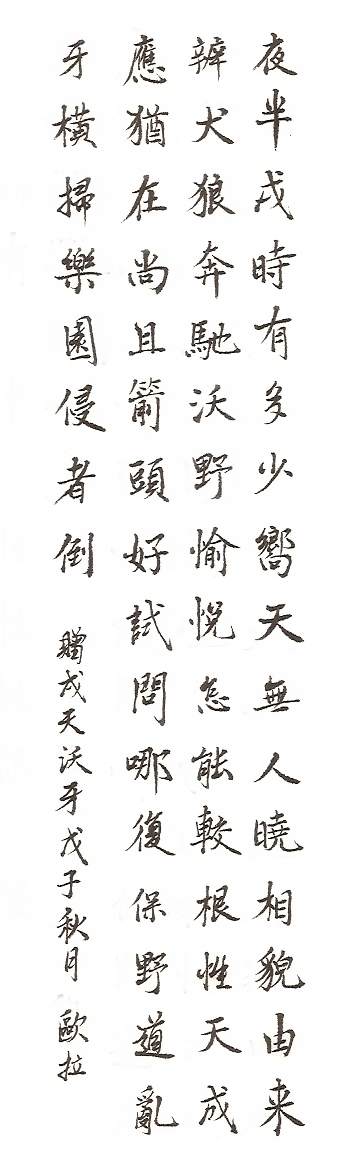 夜半戌時有多少嚮天無人曉相貌由来
辨犬狼奔馳沃野愉悦怎能較根性天成
應猶在尚且箭頭好試問哪復保野道亂
牙橫掃樂園侵者倒
贈戌天沃牙戊子秋月 歐拉